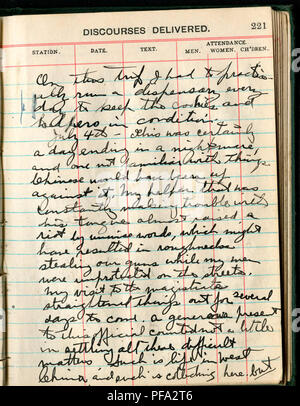 DISCOURSES DELIVERED.
221
ATTENDANCE.
STATION.
DATE.
TEXT.
MEN. WOMEN. CH'DREN.
On this trip I had to practic-
ally run a dispensary every
day to keep the coolies and
helpers in condition.
July 4th - This was certainly
a day ending in a nightmare,
and one not familiar with things
Chinese would have been up
against it. My helper that was
constantly in trouble with
his tongue almost raised a
riot by unwise words, which might
have resulted in roughnecks
stealing our guns while my men
were unprotected on the streets.
My visit to the magistrate
straightened things out for several
days to come. A generous present
to this official counted not a little
in settling all these difficult
matters. Such is life in west
China, and such is catching here, but
alamy
PFA2T6